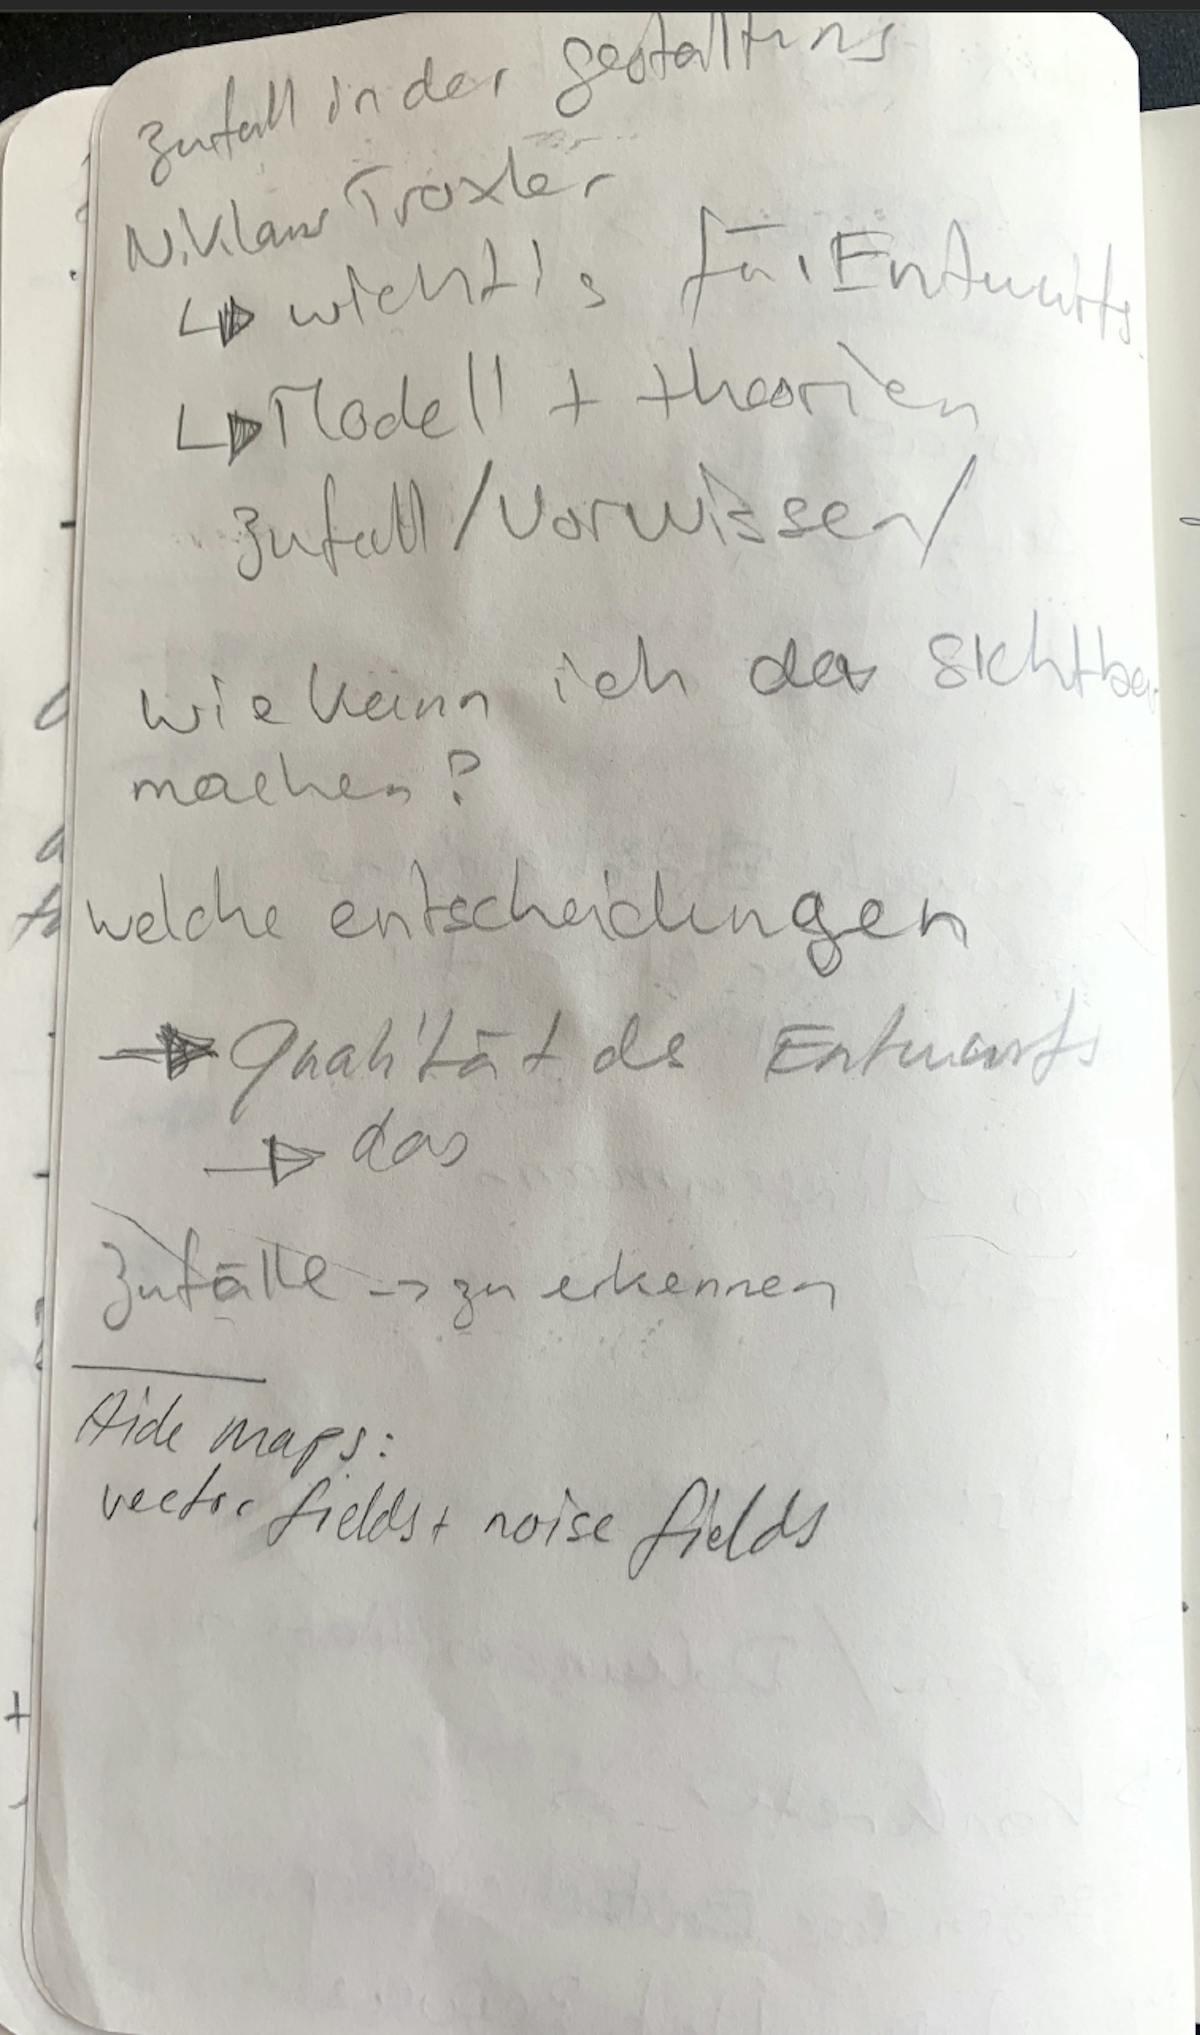 Zufall in der gestaltung
Niklaus Troxler
↳ wichtig für Entwurfs
↳ Modell + theorien
Zufall / Vorwissen /
wie kann ich das sichtbar
machen?
welche entscheidungen
→ Qualität des Entwurfs
→ das
Zufälle → zu erkennen
maps:
vector fields + noise fields